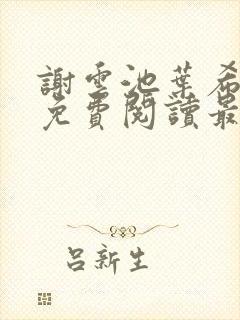 謝雲池葉希
免費閱讀最
呂新生